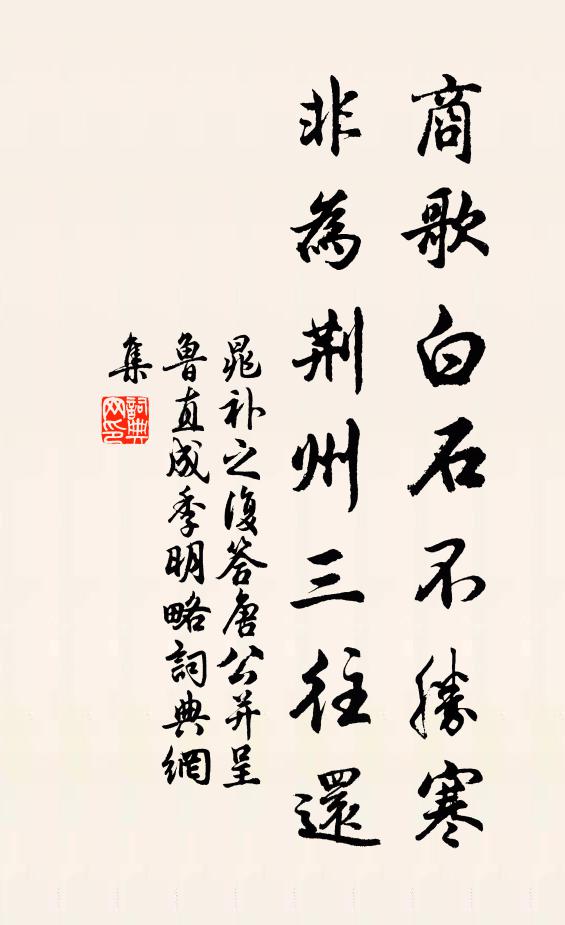 商歌白石不勝寒
非為荆州三往還
晁補之復答唐公并呈
魯直成季明略詞典網
集
詞典網印